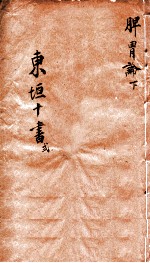 脾胃論下
東垣十書 弍